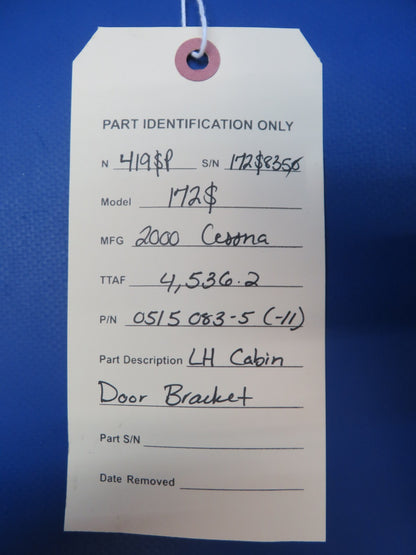 PART IDENTIFICATION ONLY
N 419SP S/N 172S8350
Model 172S
MFG 2000 Cessna
TTAF 4,536.2
P/N 0515083-5 (-11)
Part Description LH Cabin
Door Bracket
Part S/N
Date Removed